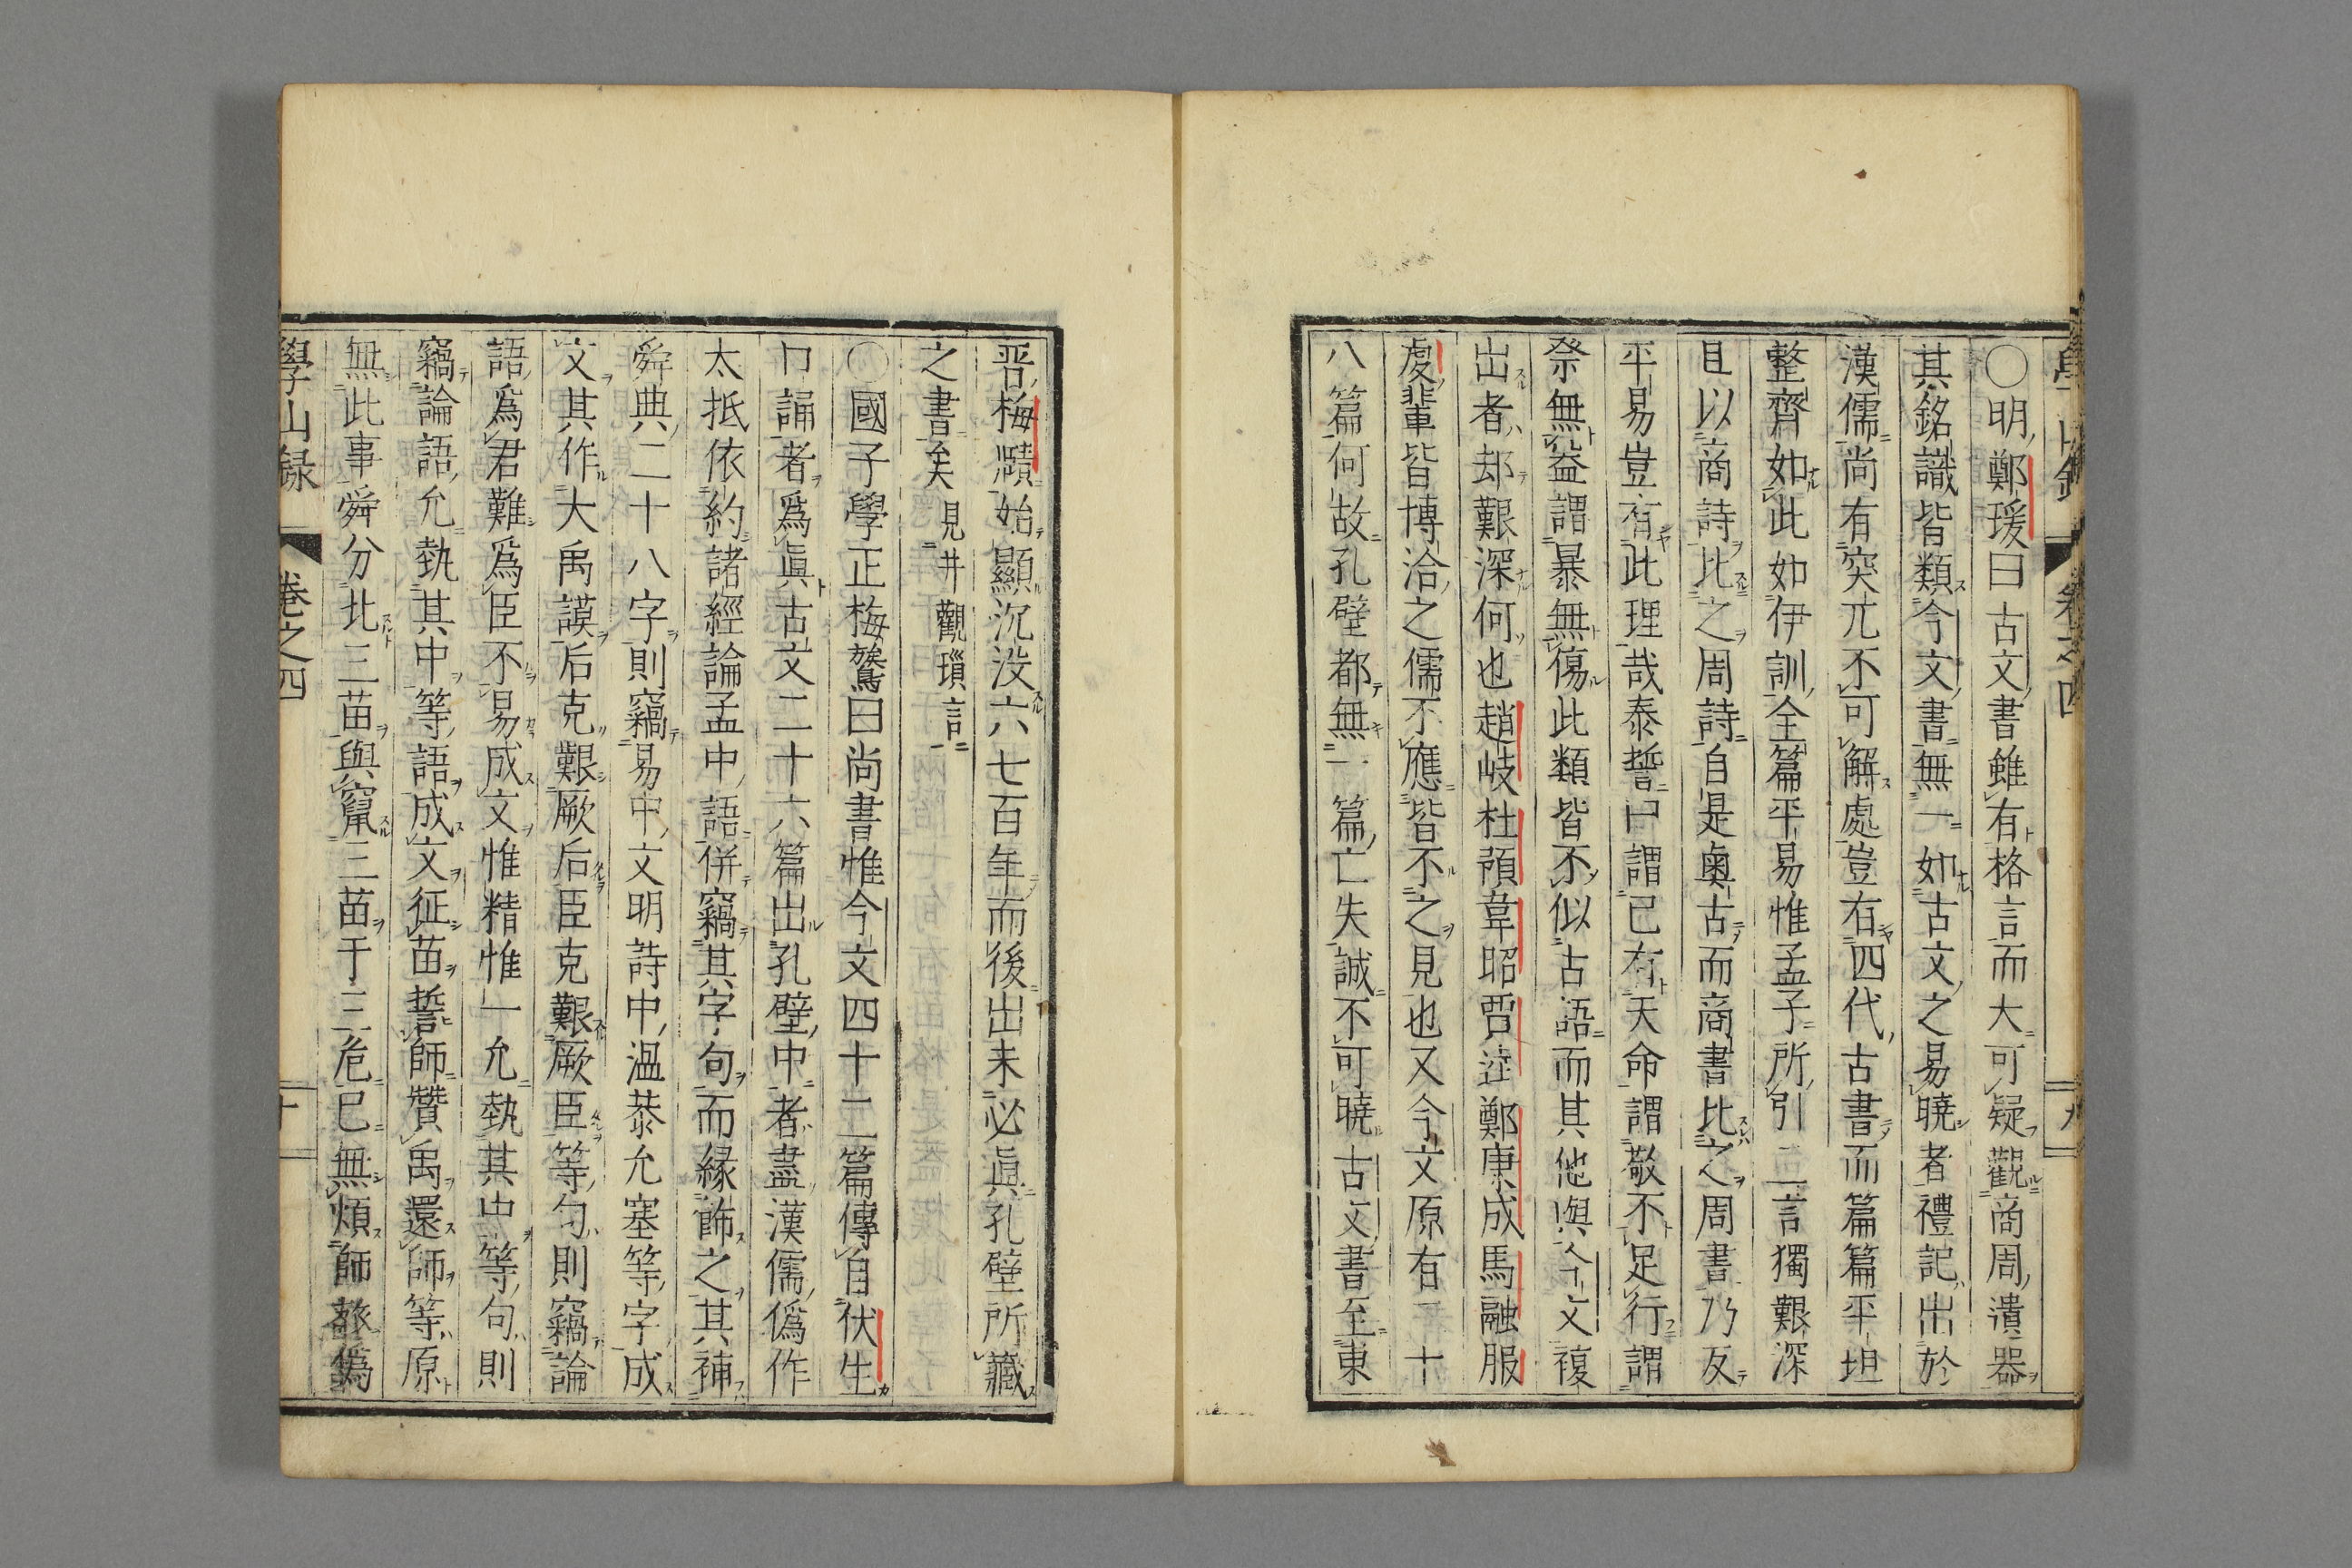 〇明鄭瑗曰古文書雖有格言而大可疑觀商周潰器
其銘識皆類今文書無一如古文之易曉者禮記出於
漢儒尚有突兀不可解處豈有四代古書而篇篇平坦
整齊如此如伊訓全篇平易惟孟子所引二言獨艱深
且以商詩比之周詩自是奧古而商書比之周書乃反
平易豈有此理哉泰誓曰謂已有天命謂敬不足行謂
祭無益謂暴無傷此類皆不似古語而其他與今文複
出者却艱深何也趙岐杜預韋昭賈逵鄭康成馬融服
虔輩皆博洽之儒不應皆不之見也又今文原有二十
八篇何故孔壁都無一篇亡失誠不可曉古文書至東
晋梅賾始顯沉没六七百年而後出未必眞孔壁所藏
之書矣見井觀瑣言
〇國子學正梅鷟曰尚書惟今文四十二篇傳自伏生
口誦者爲眞古文二十六篇出孔壁中者盡漢儒僞作
太抵依約諸經論孟中語併竊其字句而緣飾之其補
舜典二十八字則竊易中文明詩中溫恭允塞等字成
文其作大禹謨后克艱厥后臣克艱厥臣等句則竊論
語爲君難爲臣不易成文惟精惟一允執其中等句則
竊論語允執其中等語成文征苗誓師贊禹還師等原
無此事舜分北三苗與竄三苗于三危已無煩師旅僞
學山録 卷之四